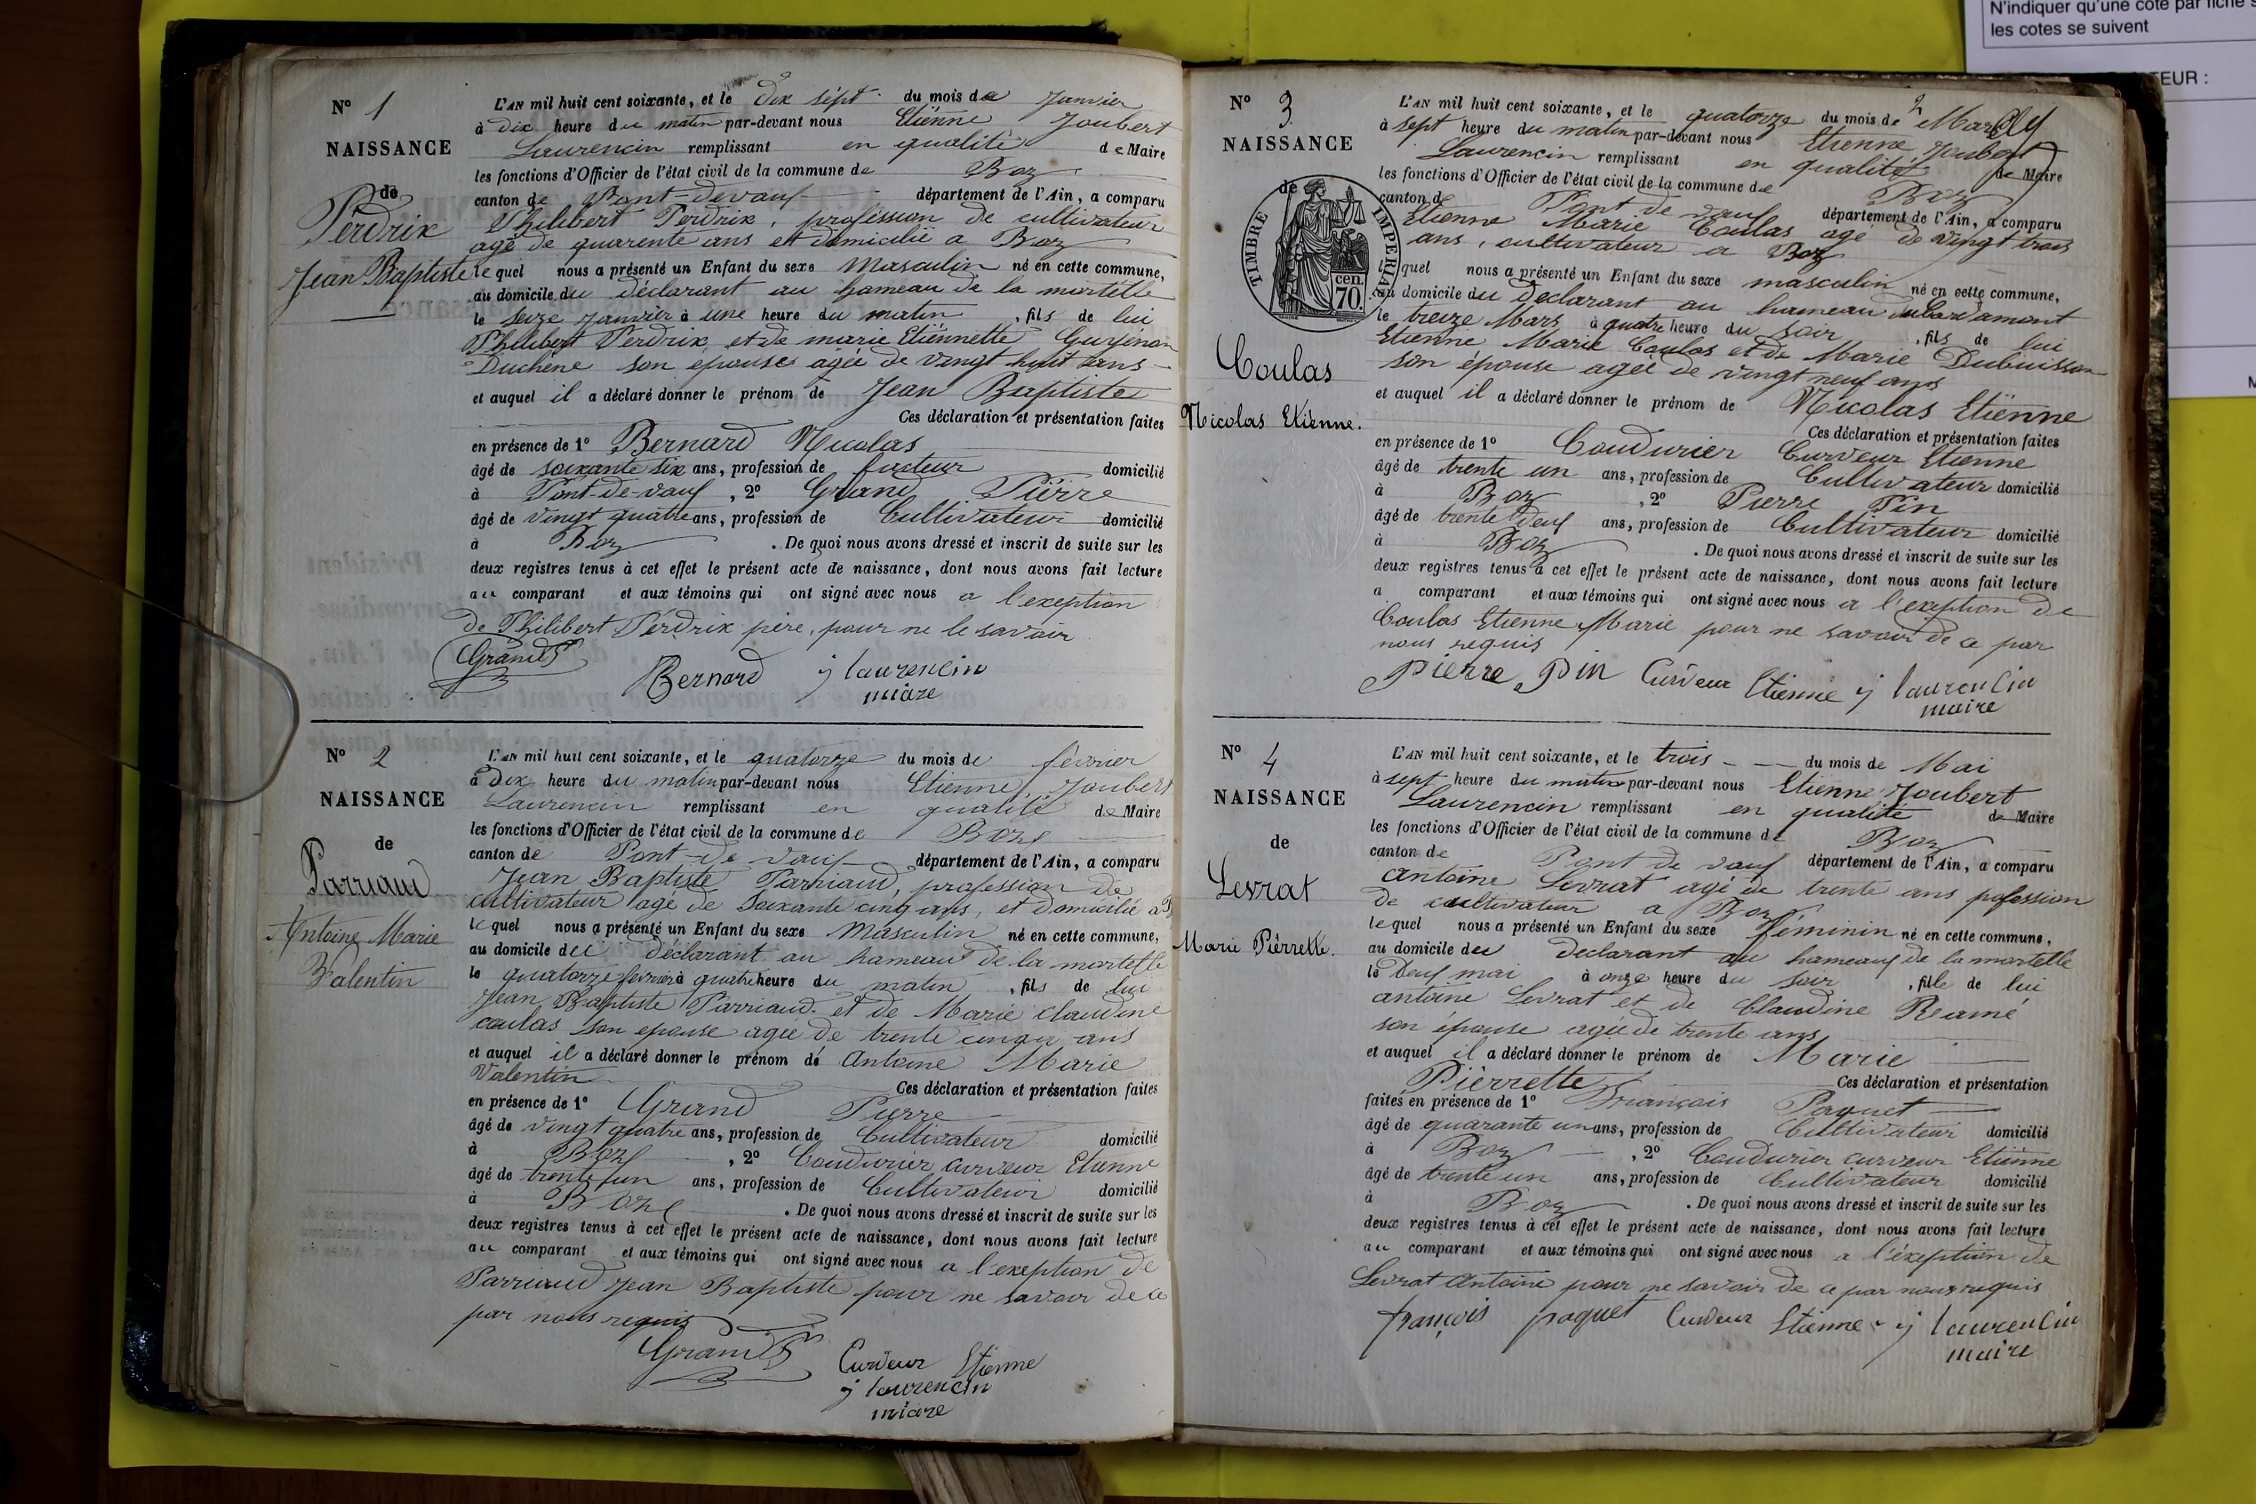 N° 1
NAISSANCE
de
Perdrix
Jean Baptiste
L'AN mil huit cent soixante, et le dix sept du mois de Janvier
à dix heure du matin par-devant nous Etienne Joubert
Laurencin remplissant en qualité de Maire
les fonctions d'Officier de l'état civil de la commune de Boz
canton de Pont-devaux département de l'Ain, a comparu
Philibert Perdrix, profession de cultivateur
agé de quarente ans et domicilié a Boz
le quel nous a présenté un Enfant du sexe Masculin né en cette commune,
au domicile du déclarant au hameau de la mortelle
le seize Janvier à une heure du matin, fils de lui
Philibert Perdrix et de marie Etiennette Guyenon
Duchene son épouse agée de vingt huit ans
et auquel il a déclaré donner le prénom de Jean Baptiste
Ces déclaration et présentation faites
en présence de 1° Bernard Nicolas
âgé de soixante six ans, profession de facteur domicilié
à Pont-de-vaux, 2° Grand Pierre
âgé de vingt quatre ans, profession de Cultivateur domicilié
à Boz. De quoi nous avons dressé et inscrit de suite sur les
deux registres tenus à cet effet le présent acte de naissance, dont nous avons fait lecture
au comparant et aux témoins qui ont signé avec nous a l'exeption
de Philibert Perdrix père, pour ne le savoir
Grand P
Bernard j laurencin
miare
N° 2
NAISSANCE
de
Parriaud
Antoine Marie
Valentin
L'AN mil huit cent soixante, et le quatorze du mois de février
à Dix heure du matin par-devant nous Etienne Joubert
Laurencin remplissant en qualité de Maire
les fonctions d'Officier de l'état civil de la commune de Boz
canton de Pont-de-vaux département de l'Ain, a comparu
Jean Baptiste Parriaud, profession de
cultivateur agé de Soixante cinq ans, et domicilié a B
le quel nous a présenté un Enfant du sexe Masculin né en cette commune,
au domicile du déclarant au hameau de la mortelle
le quatorze fevrier à quatre heure du matin, fils de lui
Jean Baptiste Parriaud et de Marie Claudine
coulas son epouse agée de trente cinq ans
et auquel il a déclaré donner le prénom de Antoine Marie
Valentin
Ces déclaration et présentation faites
en présence de 1° Grand Pierre
âgé de vingt quatre ans, profession de Cultivateur domicilié
à Boz, 2° Coudurier Curveur Etienne
âgé de trente un ans, profession de Cultivateur domicilié
à Boz. De quoi nous avons dressé et inscrit de suite sur les
deux registres tenus à cet effet le présent acte de naissance, dont nous avons fait lecture
au comparant et aux témoins qui ont signé avec nous a l'exeption de
Parriaud Jean Baptiste pour ne savoir de ce
par nous requis
Grand P
Curveur Etienne
j laurencin
miare
N° 3
NAISSANCE
de
TIMBRE IMPERIAL
cen.
70.
Coulas
Nicolas Etienne.
L'AN mil huit cent soixante, et le quatorze du mois de Mars
à sept heure du matin par-devant nous Etienne Joubert
Laurencin remplissant en qualité de Maire
les fonctions d'Officier de l'état civil de la commune de Boz
canton de Pont de vaux département de l'Ain, a comparu
Etienne Marie Coulas agé de vingt trois
ans, cultivateur a Boz
quel nous a présenté un Enfant du sexe masculin né en cette commune,
au domicile du Declarant au hameau amont
le treize Mars à quatre heure du soir, fils de lui
Etienne Marie Coulas et de Marie Dubuisson
son épouse agée de vingt neuf ans
et auquel il a déclaré donner le prénom de Nicolas Etienne
Ces déclaration et présentation faites
en présence de 1° Coudurier Curveur Etienne
âgé de trente un ans, profession de Cultivateur domicilié
à Boz, 2° Pierre Pin
âgé de trente deux ans, profession de Cultivateur domicilié
à Boz. De quoi nous avons dressé et inscrit de suite sur les
deux registres tenus à cet effet le présent acte de naissance, dont nous avons fait lecture
a comparant et aux témoins qui ont signé avec nous a l'exeption de
Coulas Etienne Marie pour ne savoir de ce par
nous requis
Pierre Pin Curveur Etienne j laurencin
maire
N° 4
NAISSANCE
de
Levrat
Marie Pierrette.
L'AN mil huit cent soixante, et le trois du mois de Mai
à sept heure du matin par-devant nous Etienne Joubert
Laurencin remplissant en qualité de Maire
les fonctions d'Officier de l'état civil de la commune de Boz
canton de Pont de vaux département de l'Ain, a comparu
antoine Levrat agé de trente ans pofession
de cultivateur a Boz
le quel nous a présenté un Enfant du sexe féminin né en cette commune,
au domicile du Declarant au hameau de la mortelle
le Deux mai à onze heure du soir, fille de lui
antoine Levrat et de Claudine Reamé
son épouse agée de trente ans
et auquel il a déclaré donner le prénom de Marie
Pierrette
Ces déclaration et présentation
faites en présence de 1° François Paquet
âgé de quarante un ans, profession de Cultivateur domicilié
à Boz, 2° Coudurier curveur Etienne
âgé de trente un ans, profession de Cultivateur domicilié
à Boz. De quoi nous avons dressé et inscrit de suite sur les
deux registres tenus à cet effet le présent acte de naissance, dont nous avons fait lecture
au comparant et aux témoins qui ont signé avec nous a l'exeption de
Levrat Antoine pour ne savoir de ce par nous requis
françois paquet Curveur Etienne j laurencin
maire
N'indiquer qu'une cote par fiche s
les cotes se suivent
TEUR :